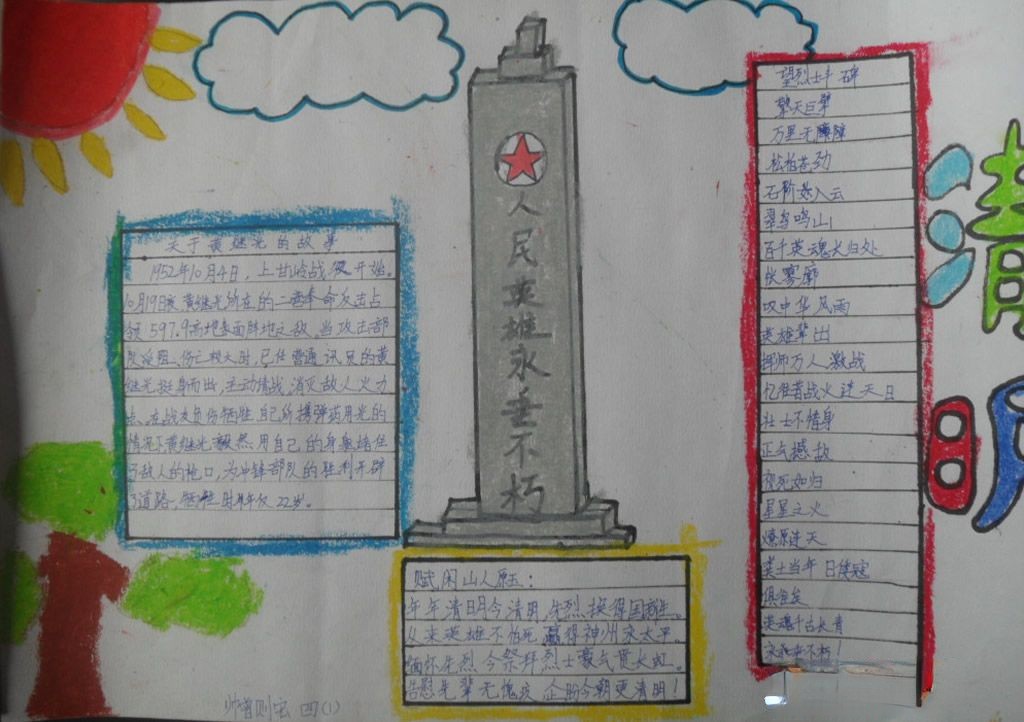 关于黄继光的故事
1952年10月4日，上甘岭战役开始。
10月19日夜 黄继光所在的二营奉命反击占
领 597.9高地表面阵地之敌。当攻击部
队受阻、伤亡较大时，已任营通讯员的黄
继光挺身而出，主动请战，消灭敌人火力
点。在战友负伤牺牲 自己所携弹药用光的
情况下，黄继光毅然用自己的身躯堵住
了敌人的枪口，为冲锋部队的胜利开辟
了道路，牺牲时年仅22岁。
人民英雄永垂不朽
赋闲山人原玉：
年年清明今清明，先烈换得国新生。
从来英雄不怕死 赢得神州永太平。
缅怀先烈今祭拜 烈士豪气贯长虹。
告慰先辈无愧疚 企盼今朝更清明！
望烈士丰碑
擎天巨擘
万里无障
松柏苍劲
石阶入云
翠鸟鸣山
百千英魂长归处
雾廓
叹中华风雨
英雄辈出
挥师万人激战
亿准普战火连天日
壮士不惜身
正气撼敌
视死如归
星星之火
燎原连天
当年日倭寇
俱
英魂千古长青
永垂不朽！
清
明
四(1)